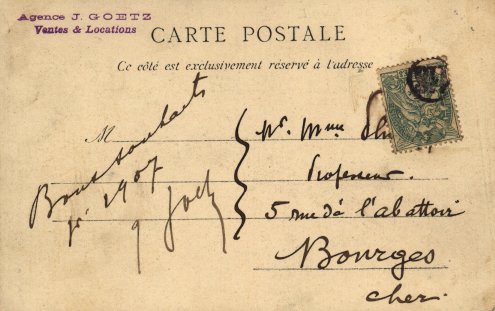 Agence J. GOETZ
Ventes & Locations
CARTE POSTALE
Ce côté est exclusivement réservé à l'adresse
M
Bons souhaits
pr. 1907
J Goetz
Mr. Mme
Professeur.
5 rue de l'abattoir
Bourges
Cher.